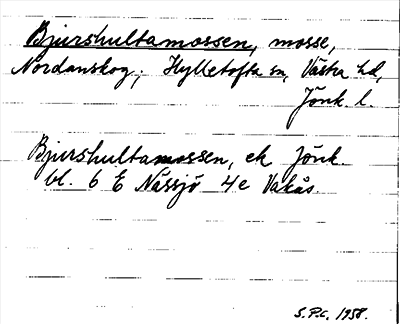 Bjurshultamossen, mosse,
Nordanskog; Hylletofta sn, Västra hd,
Jönk l.
Bjurshultamossen, ek Jönk.
bl. 6 E Nässjö 4e Vakås.
S.P.C. 1958.